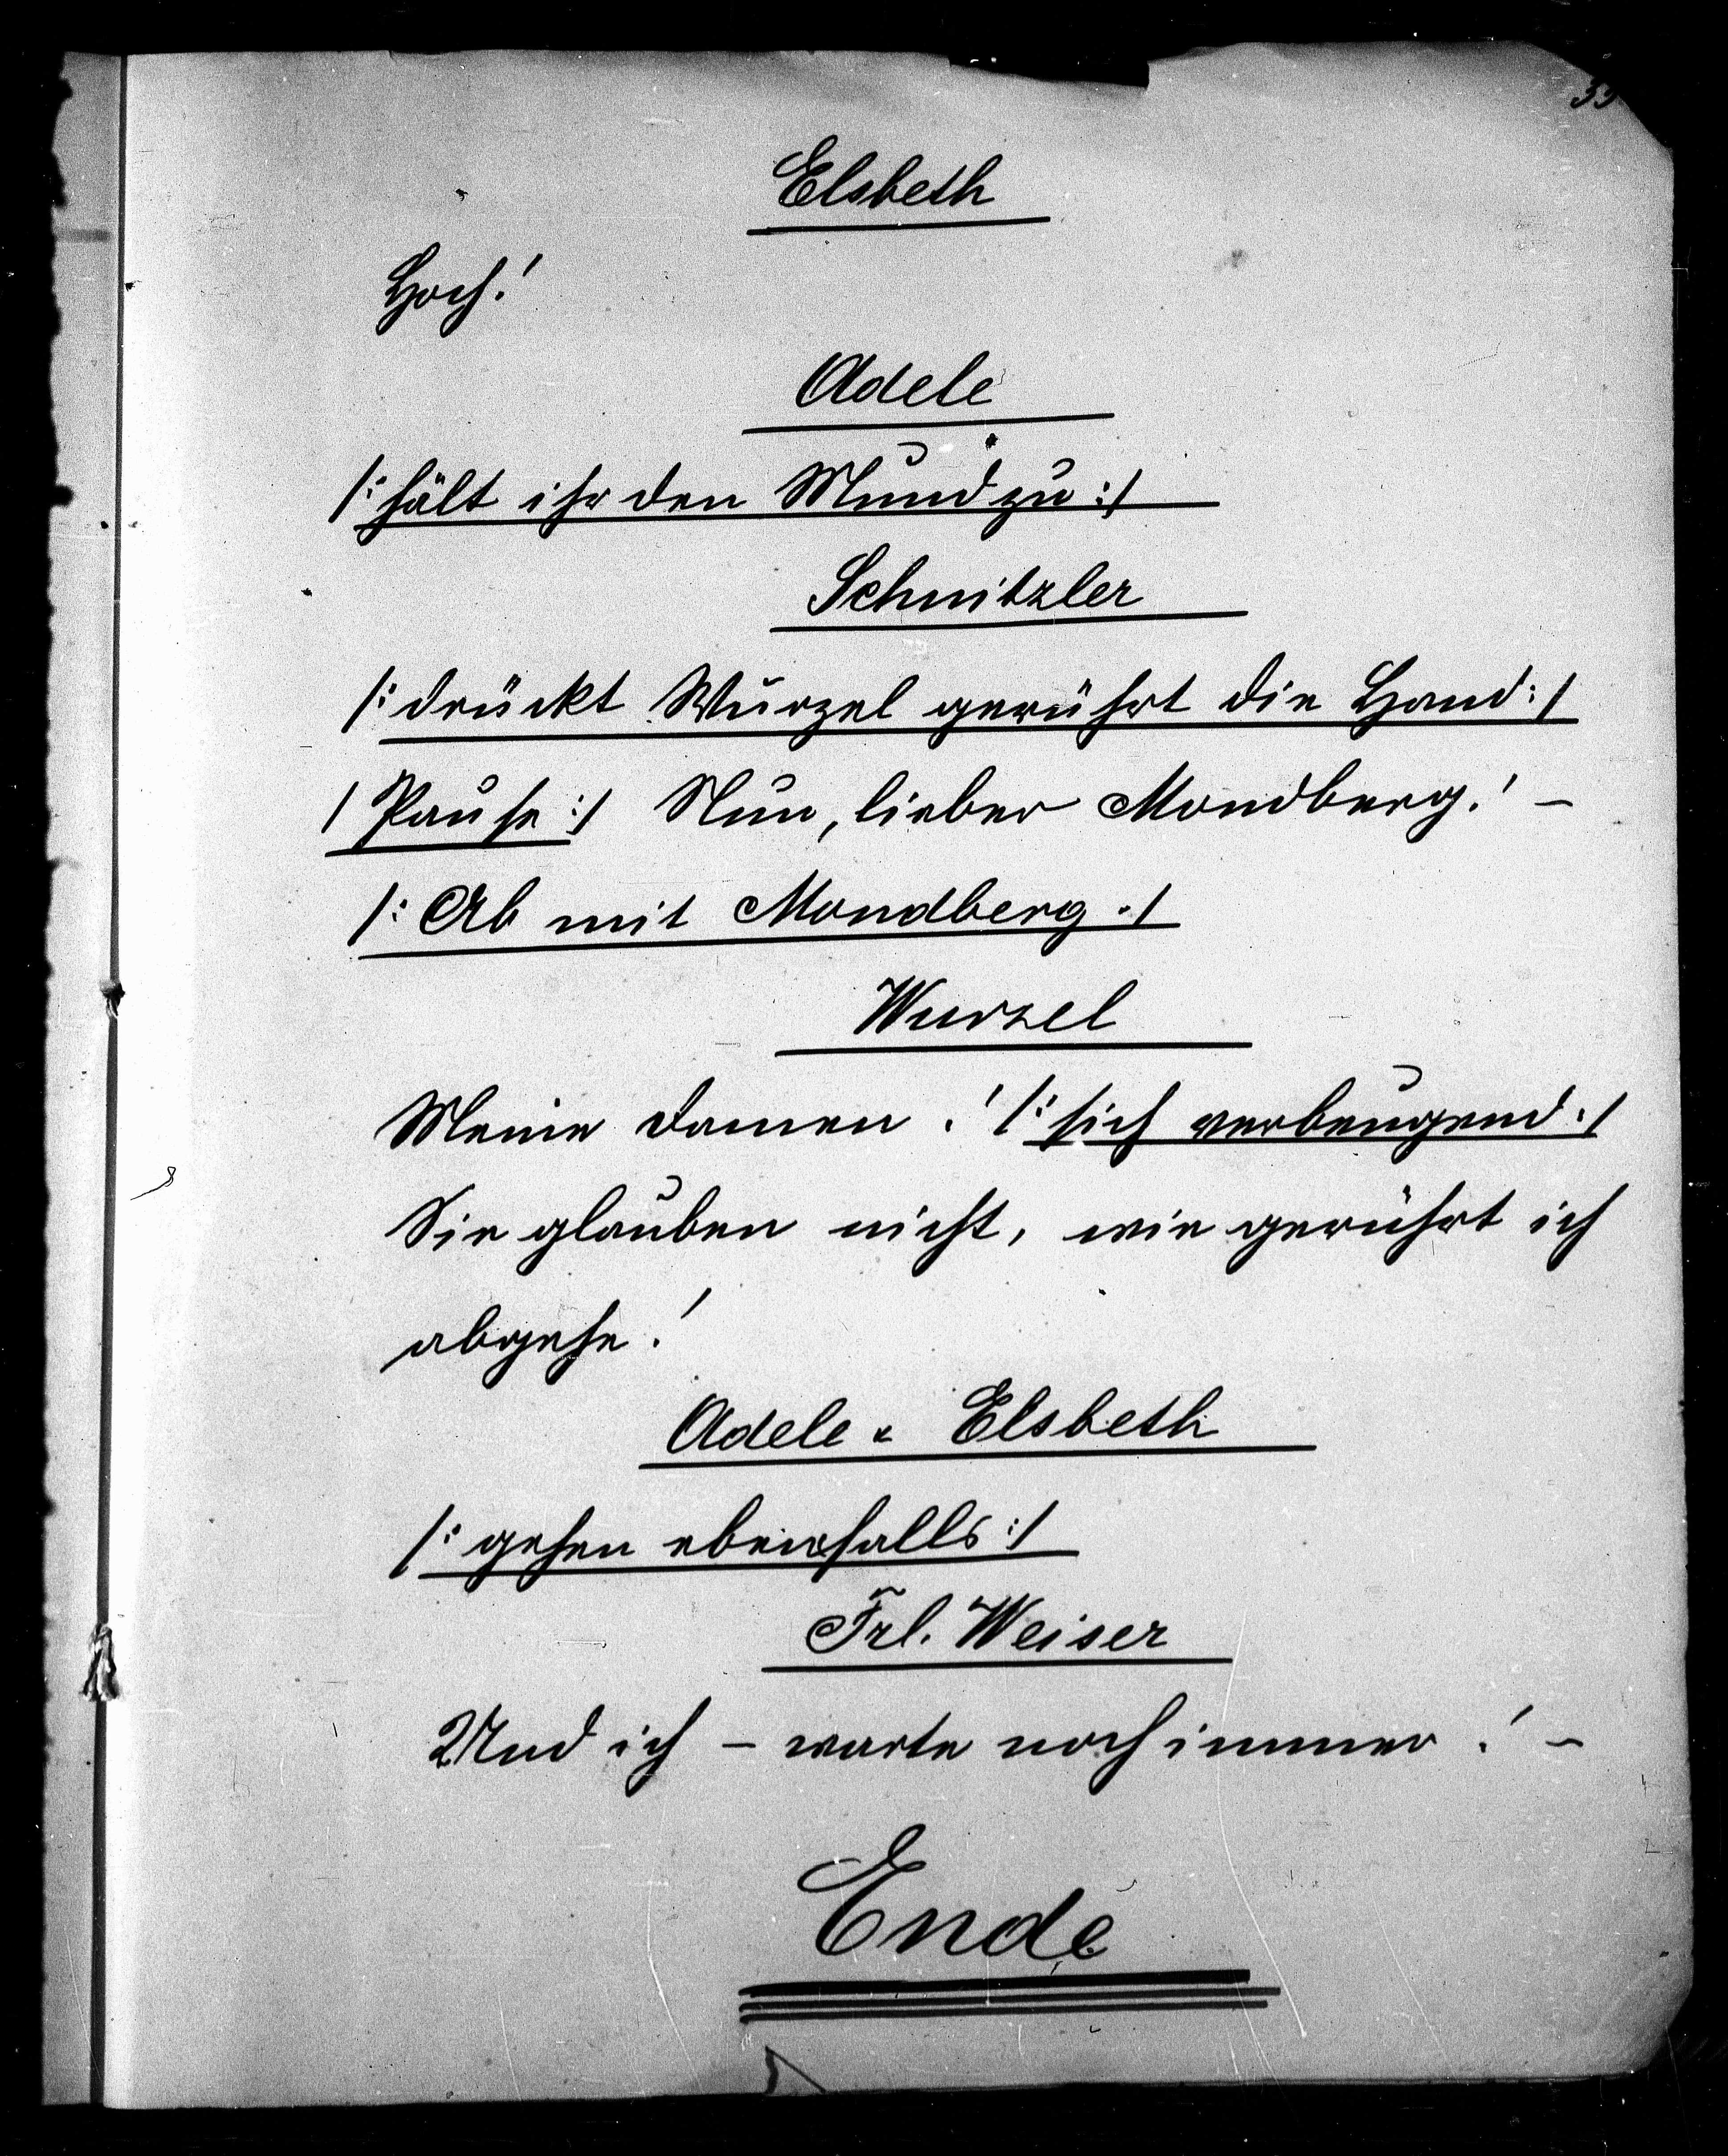 Elsbeth
Hoch!
Adele
/: hält ihr den Mund zu :/
Schnitzler
/: drückt Wurzel gerührt die Hand :/
/ Pause :/ Nun, lieber Mondberg! –
/: Ab mit Mondberg ./
Wurzel
Meine Damen! /: sich verbeugend :/
Sie glauben nicht, wie gerührt ich
abgehe!
Adele & Elsbeth
/: gehen ebenfalls :/
Frl. Weiser
Und ich – warte noch immer! –
Ende